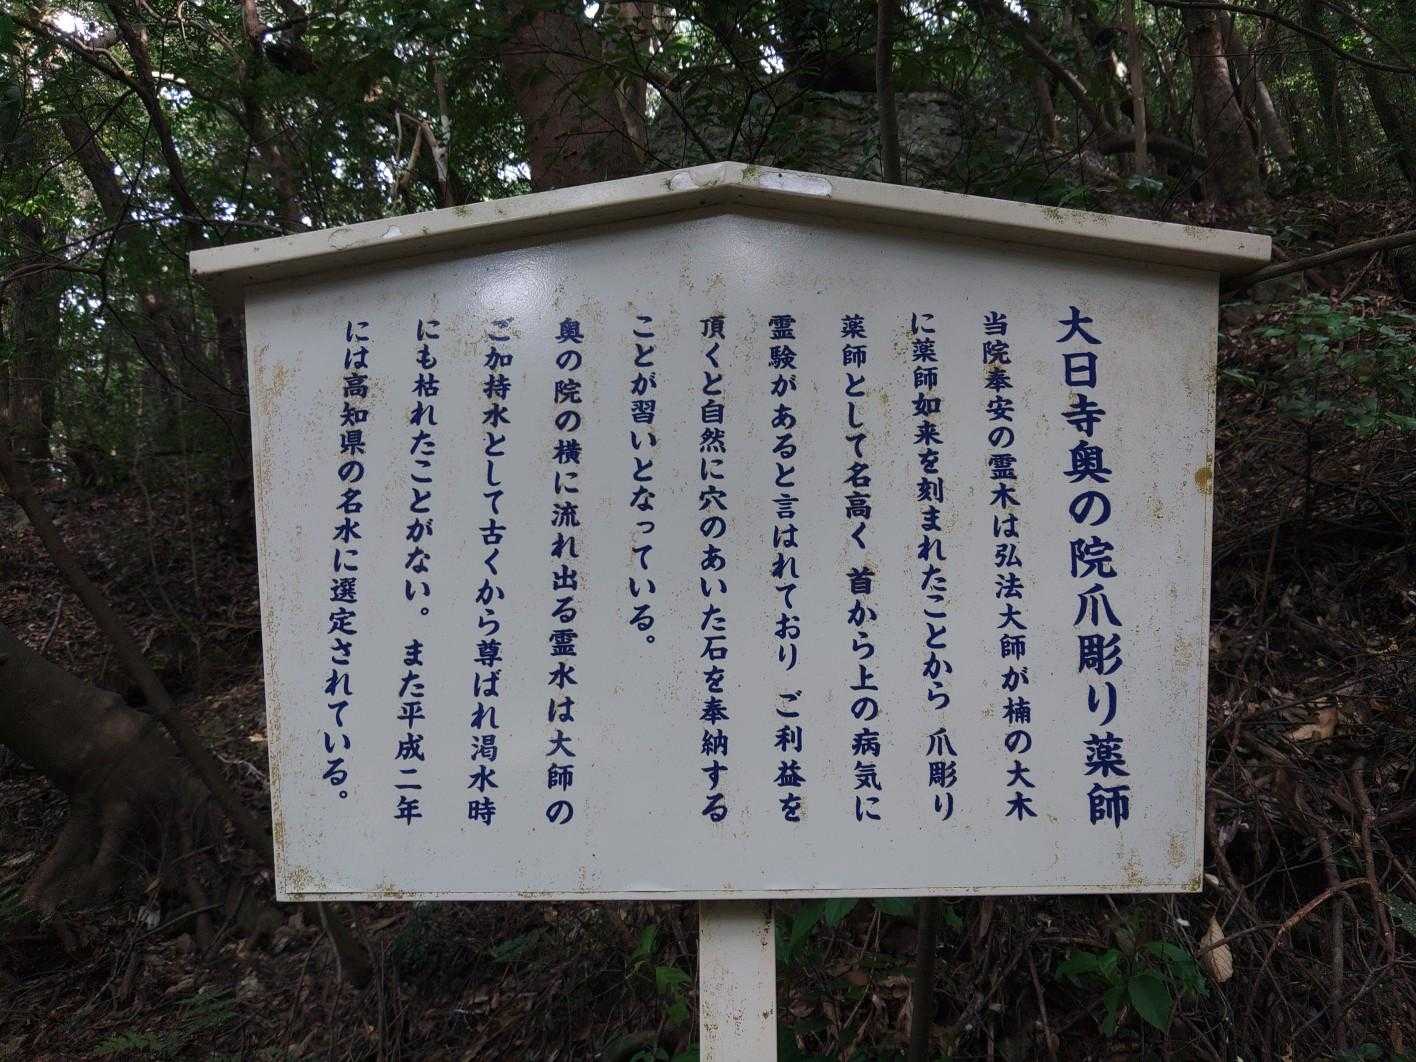 大日寺奥の院爪彫り薬師
当院奉安の霊木は弘法大師が楠の大木
に薬師如来を刻まれたことから 爪彫り
薬師として名高く 首から上の病気に
霊験があると言はれており ご利益を
頂くと自然に穴のあいた石を奉納する
ことが習いとなっている。
奥の院の横に流れ出る霊水は大師の
ご加持水として古くから尊ばれ渇水時
にも枯れたことがない。 また平成二年
には高知県の名水に選定されている。